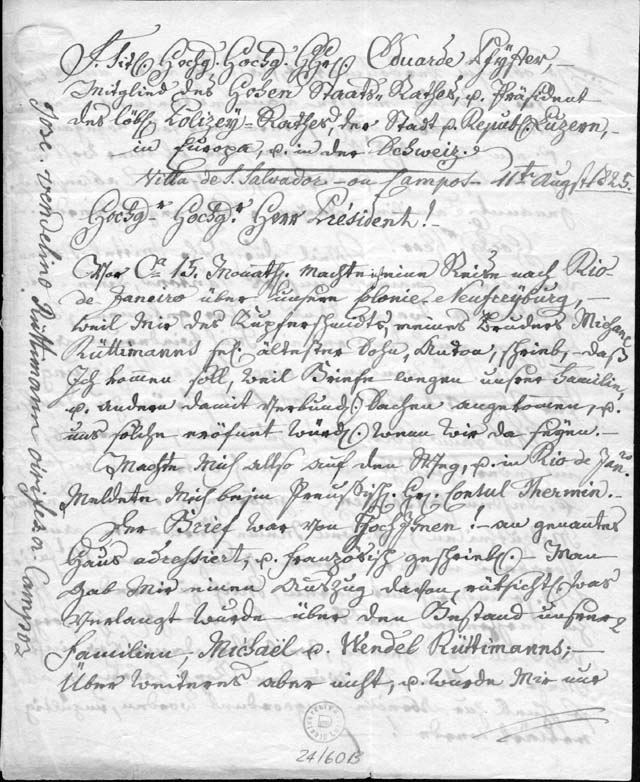 S. Titl. Hochg. Hochg. Hr. Eduarde Pfyffer, –
Mitglied des Hohen Staats-Rathes, u. Präsident
des löbl. Polizey-Rathes, der Stadt u. Republ. Luzern, –
in Europa, u. in der Schweiz.
Villa de S. Salvador – ou Campos – 11t. Augst 1825.
Hochgr. Hochgr. Herr Président! –
Vor Ca. 15. Monath. machte eine Reise nach Rio
de Janeiro über unsere Colonie-Neufreyburg, –
weil mir des Kupferschmidts, meines Bruders Michael
Rüttimanns sel. ältester Sohn, Anton, schrieb, – daß
Ich kommen soll, weil Briefe wegen unsrer Familie,
u. andern damit verbund. Sachen angekomen, u.
uns solche eröfnet würd. wenn wir da seyen. –
Machte mich also auf den Weg, u. in Rio de Janro.
Meldete mich beim Preussisch. Hr. Consul Thermin. –
Der Brief war von ! – an genantes
Haus adressiert, u. französisch geschrieb. – Man
gab mir einen Auszug davon, rütsicht. was
verlangt wurde über den Bestand unsrer
Familien, Michaël u. Wendel Rüttimanns; –
Über weiteres aber nicht, u. wurde mir nur
Jose. wendelino Rüttimann Campos
24/60 B